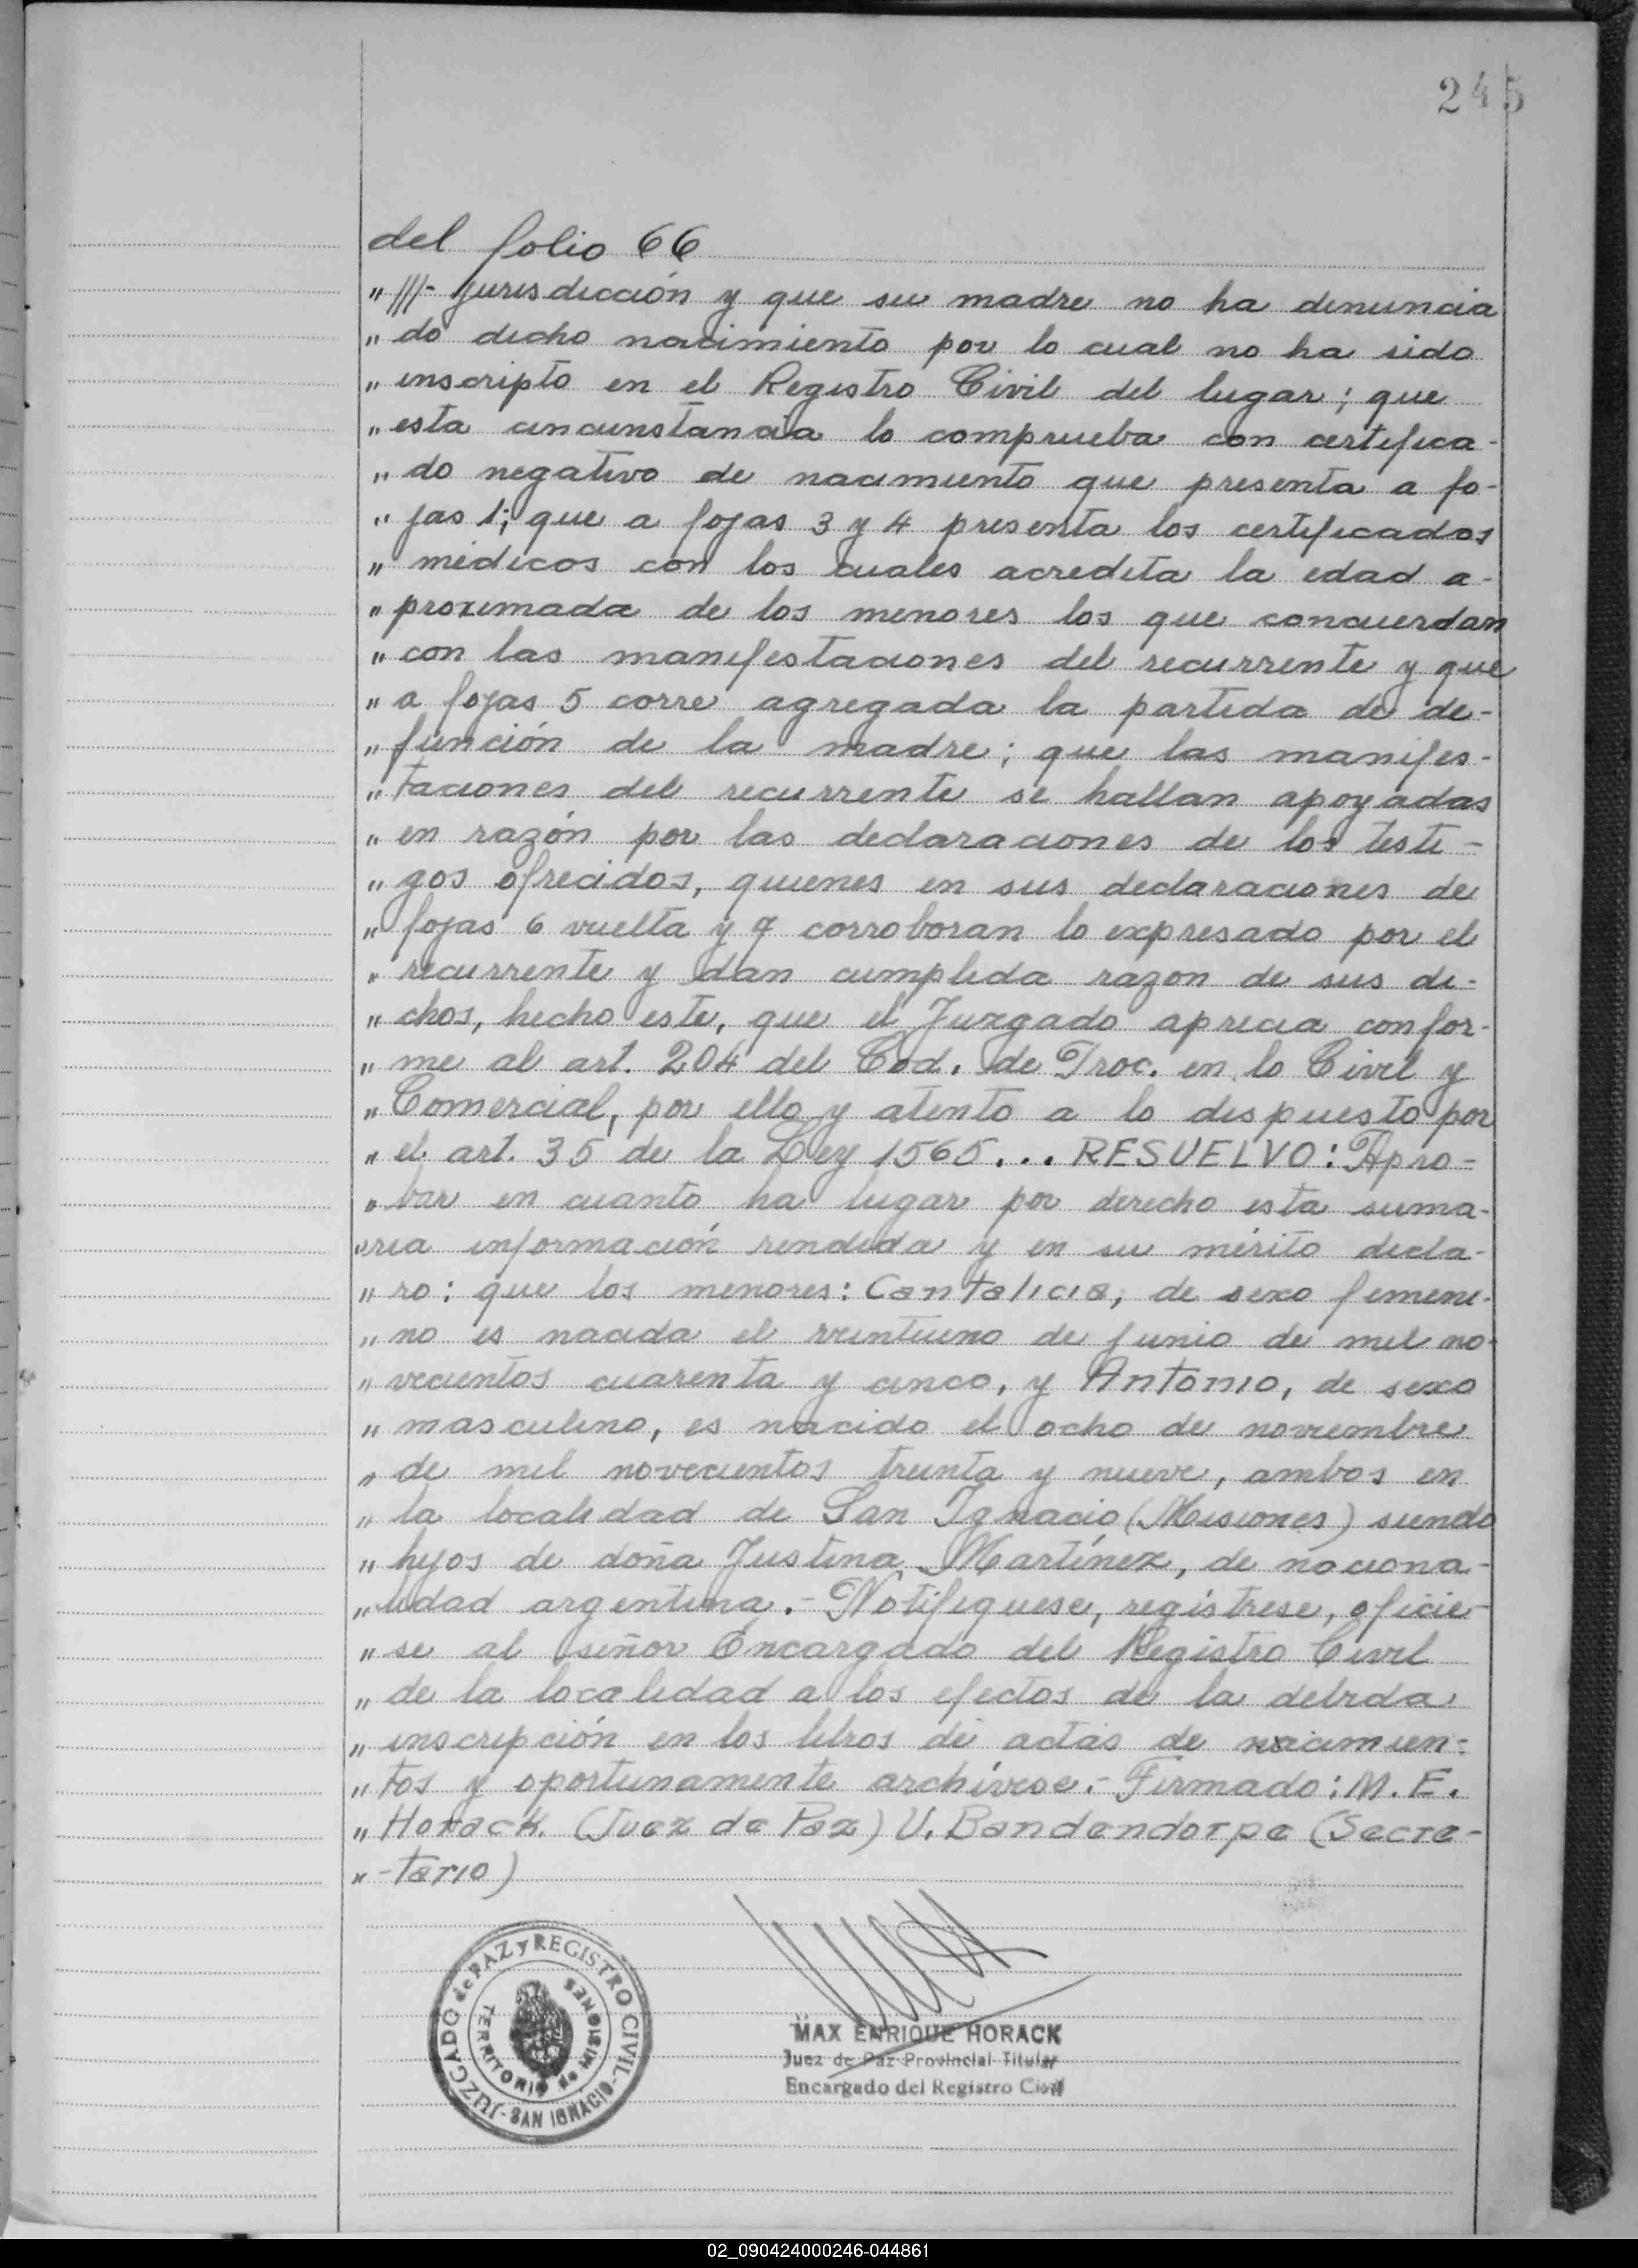 245
del folio 66
" ///- jurisdicción y que su madre no ha denuncia
" do dicho nacimiento por lo cual no ha sido
" inscripto en el Registro Civil del lugar; que
" esta circunstancia lo comprueba con certifica-
" do negativo de nacimiento que presenta a fo-
" jas 1; que a fojas 3 y 4 presenta los certificados
" médicos con los cuales acredita la edad a-
" proximada de los menores los que concuerdan
" con las manifestaciones del recurrente y que
" a fojas 5 corre agregada la partida de de-
" función de la madre; que las manifes-
" taciones del recurrente se hallan apoyadas
" en razón por las declaraciones de los testi-
" gos ofrecidos, quienes en sus declaraciones de
" fojas 6 vuelta y 7 corroboran lo expresado por el
" recurrente y dan cumplida razon de sus di-
" chos, hecho este, que el Juzgado aprecia confor-
" me al art. 204 del Cod. de Proc. en lo Civil y
" Comercial, por ello y atento a lo dispuesto por
" el art. 35 de la Ley 1565... RESUELVO: Apro-
" bar en cuanto ha lugar por derecho esta suma-
" ria información rendida y en su mérito decla-
" ro: que los menores: Cantalicia, de sexo femeni-
" no es nacida el veintiuno de junio de mil no-
" vecientos cuarenta y cinco, y Antonio, de sexo
" masculino, es nacido el ocho de noviembre
" de mil novecientos treinta y nueve, ambos en
" la localidad de San Ignacio (Misiones) siendo
" hijos de doña Justina Martínez, de naciona-
" lidad argentina.- Notifíquese, regístrese, ofície-
" se al señor Encargado del Registro Civil
" de la localidad a los efectos de la debida
" inscripción en los libros de actas de nacimien-
" tos y oportunamente archívese.- Firmado: M. E.
" Horack. (Juez de Paz) U. Bandendorpe (Secre-
" -tario)
JUZGADO de PAZ y REGISTRO CIVIL
TERRITORIO de MISIONES
-SAN IGNACIO-
MAX ENRIQUE HORACK
Juez de Paz Provincial Titular
Encargado del Registro Civil
02_090424000246-044861